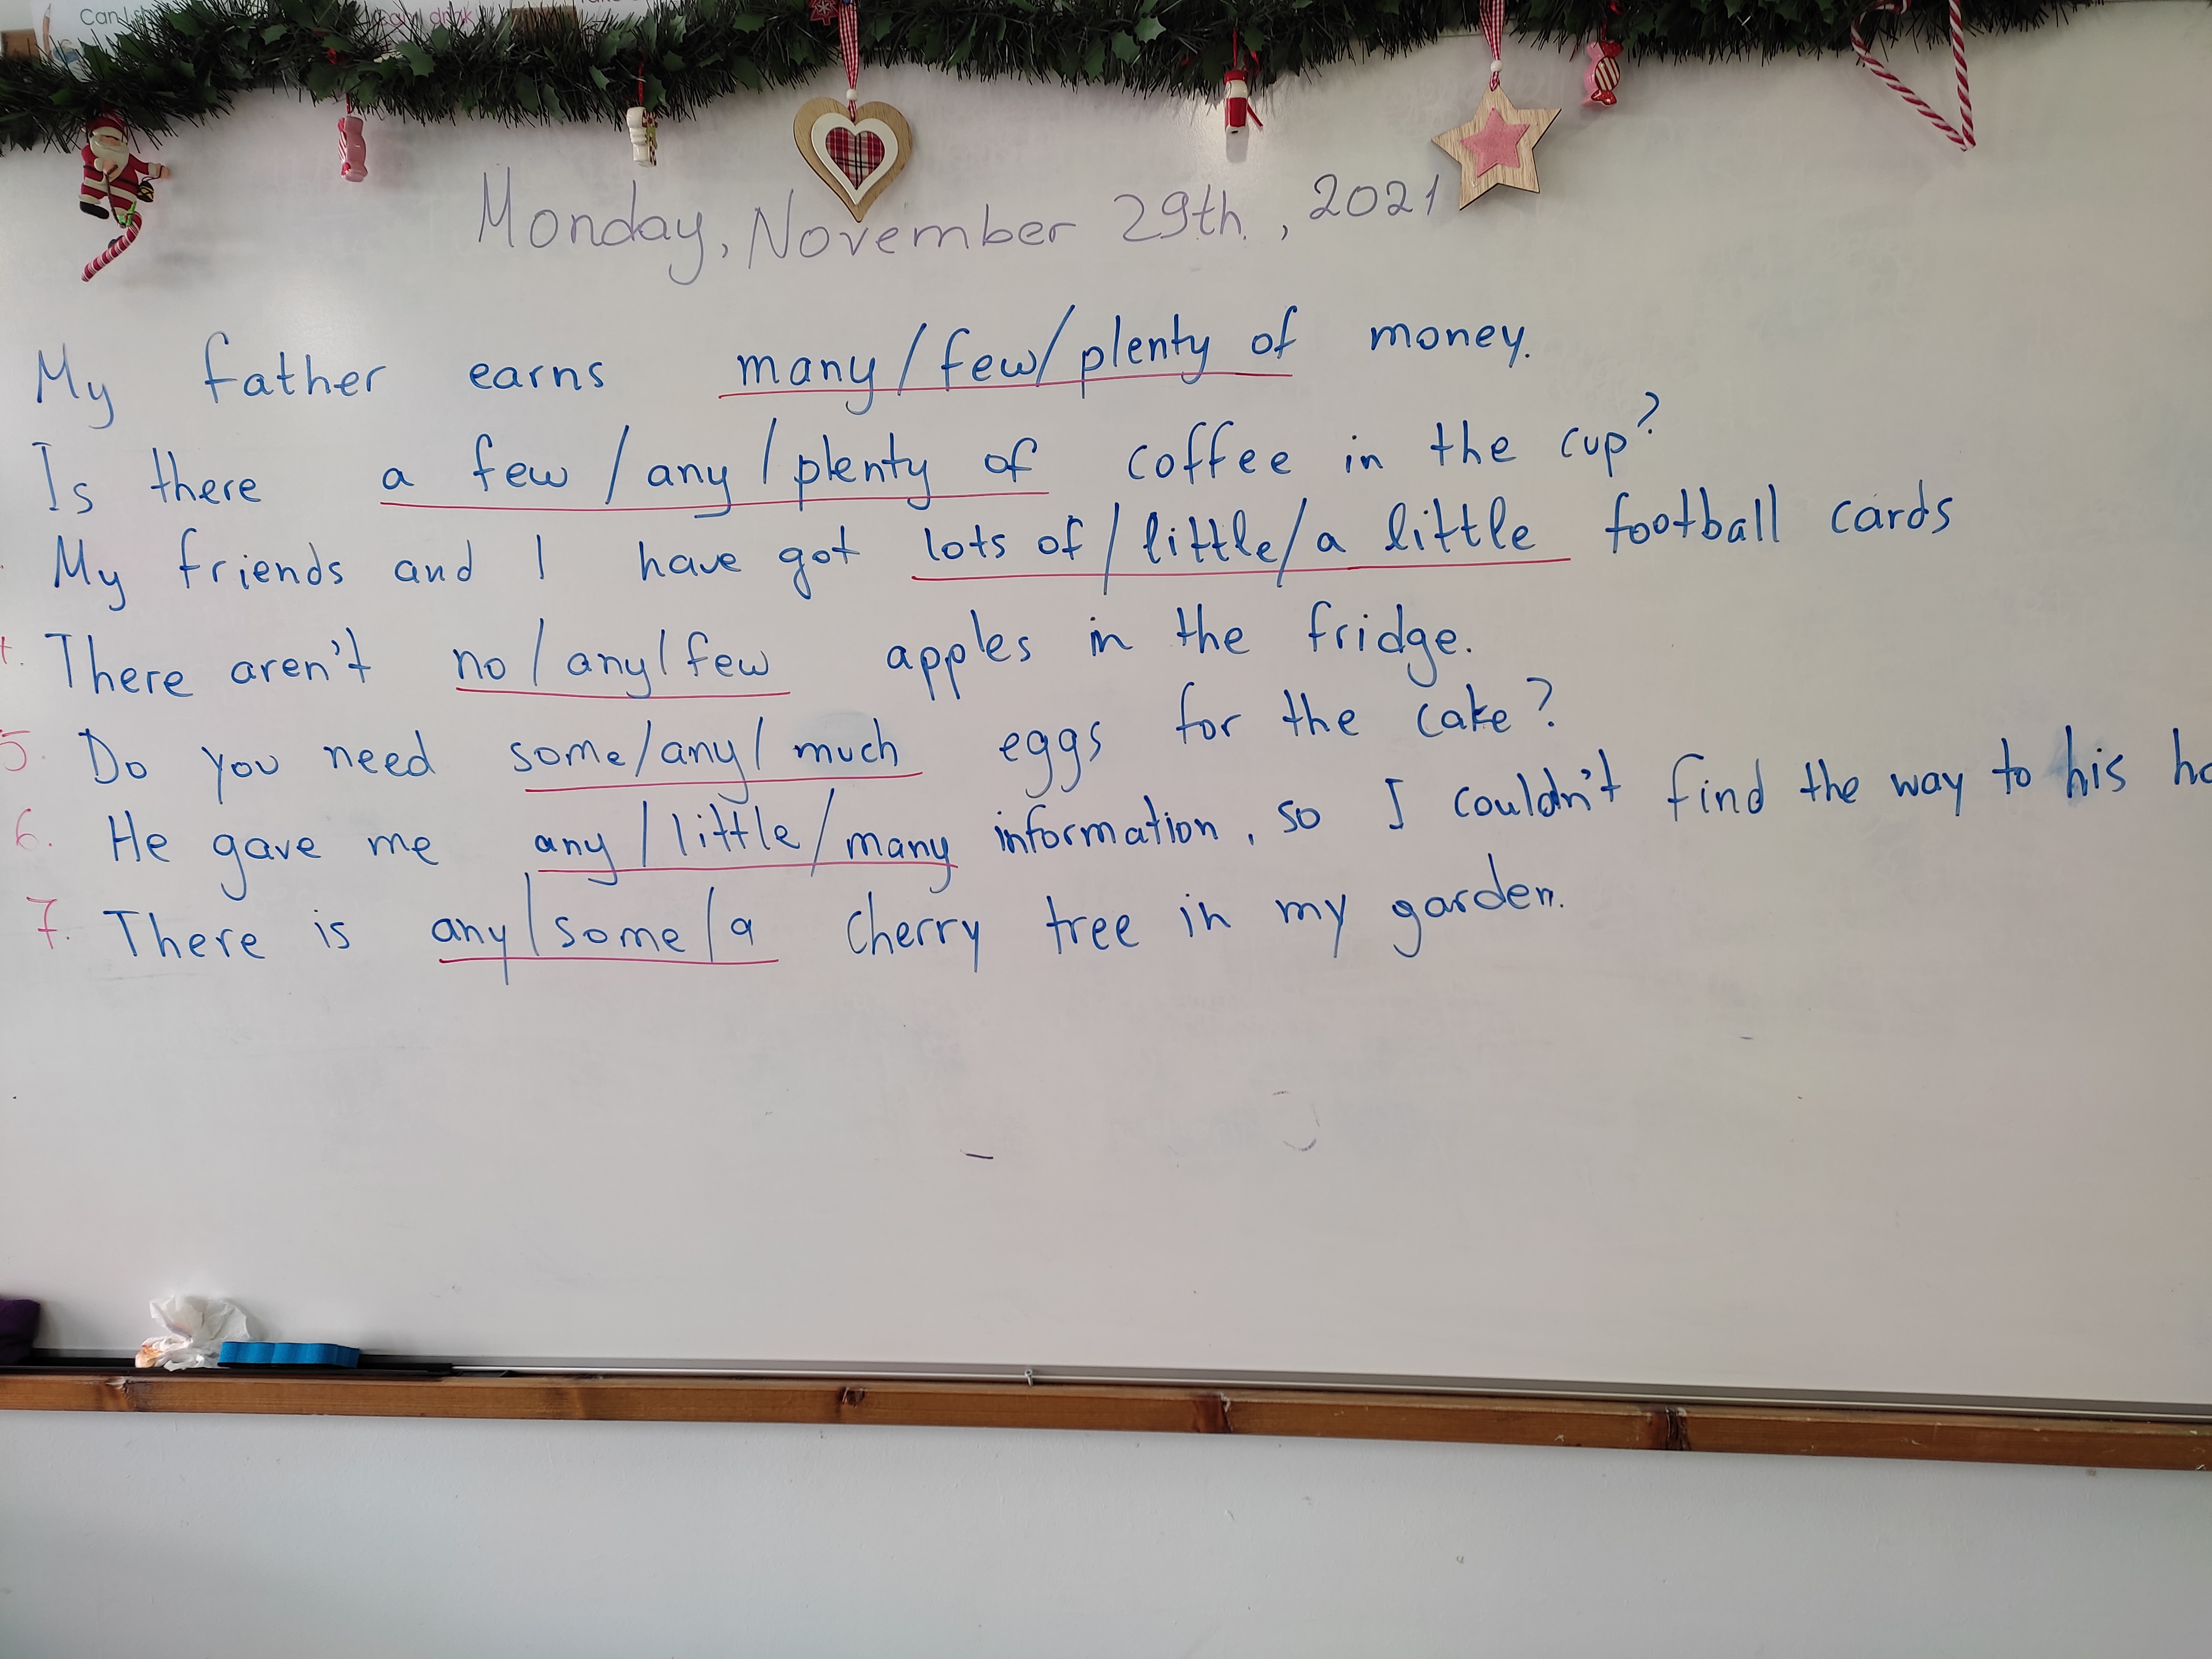 Monday, November 29th, 2021
My father earns many/few/plenty of money.
Is there a few/any/plenty of coffee in the cup?
My friends and I have got lots of/little/a little football cards
4. There aren't no/any/few apples in the fridge.
5. Do you need some/any/much eggs for the cake?
6. He gave me any/little/many information, so I couldn't find the way to his
7. There is any/some/a cherry tree in my garden.